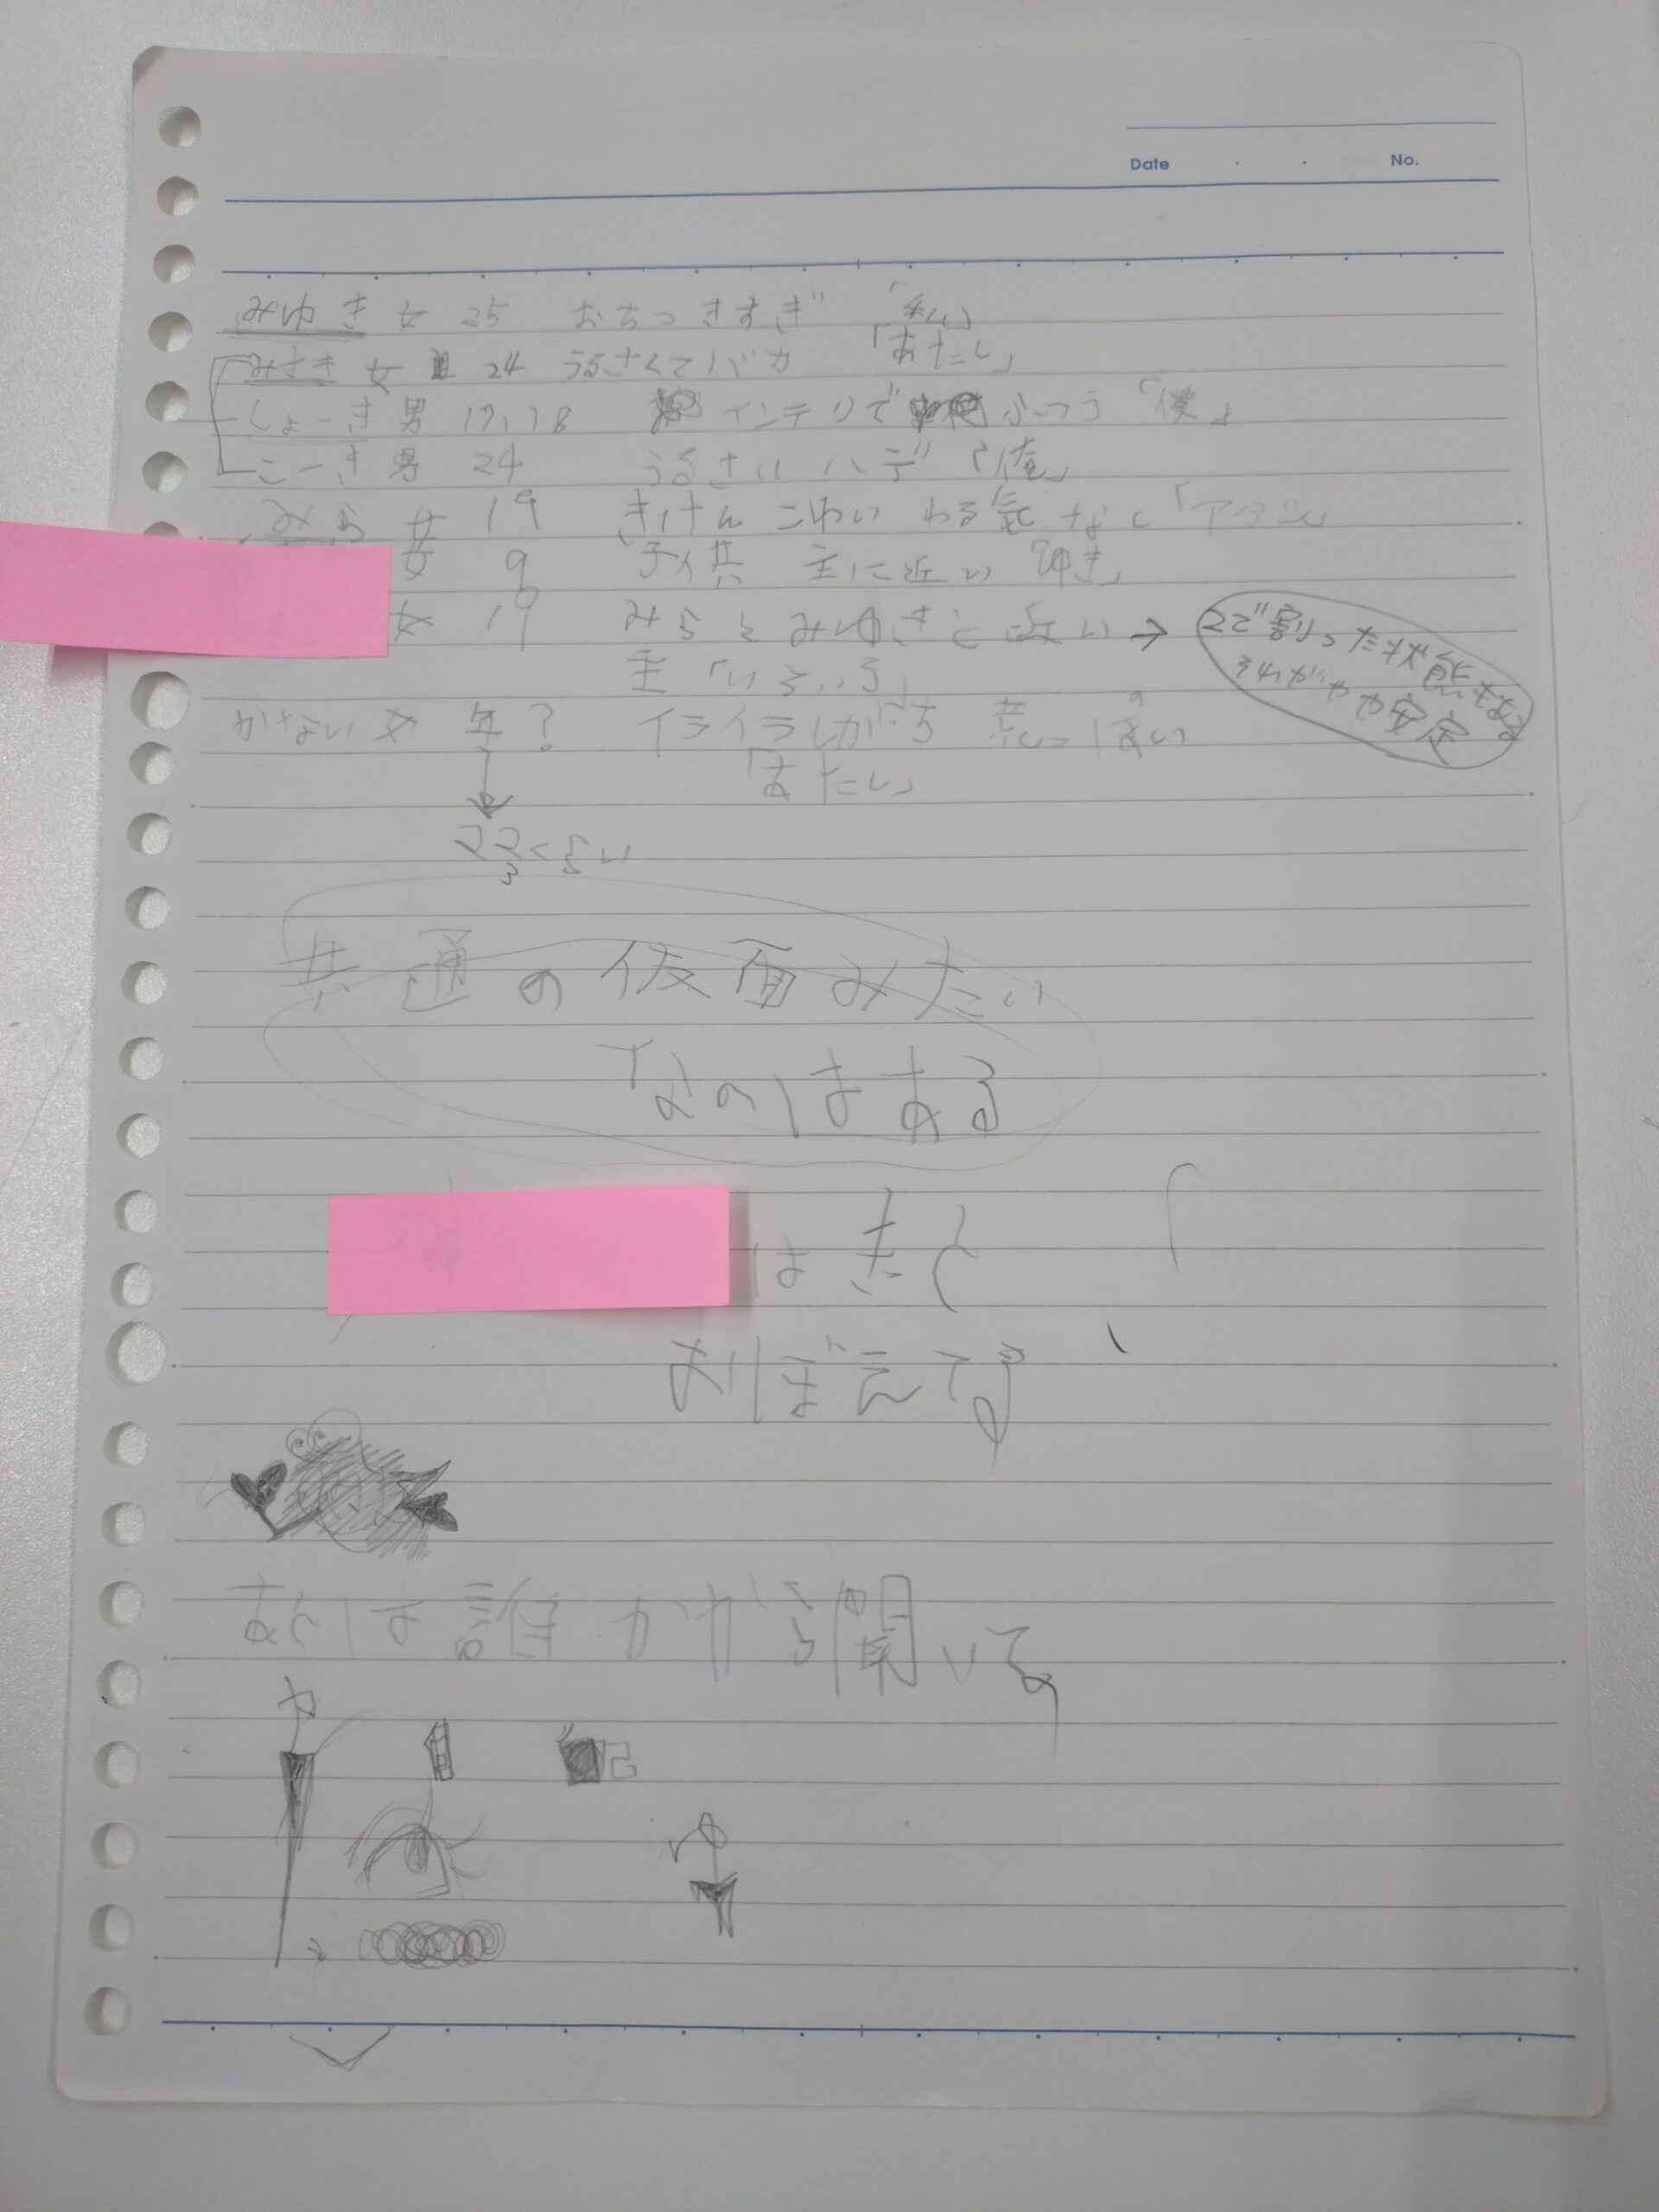 Date No.
みゆき 女 25 おちつきすぎ 「私」
みさき 女 24 うるさくてバカ 「あたし」
しょーき 男 17,18 インテリで ふつう 「僕」
こーき 男 24 うるさい ハデ 「俺」
みら 女 19 きけん こわい わる気なし 「アタシ」
女 9 子供 主に近い 「ゆき」
女 19 みらとみゆきと近い → 2で割った状態もある
それがやや安定
主 「いろいろ」
女 年? イライラしがち 荒っぽい
「あたい」
22くらい
3
共通の仮面みたい
なのはある
はきく
おぼえてる
あとは誰かから聞いて